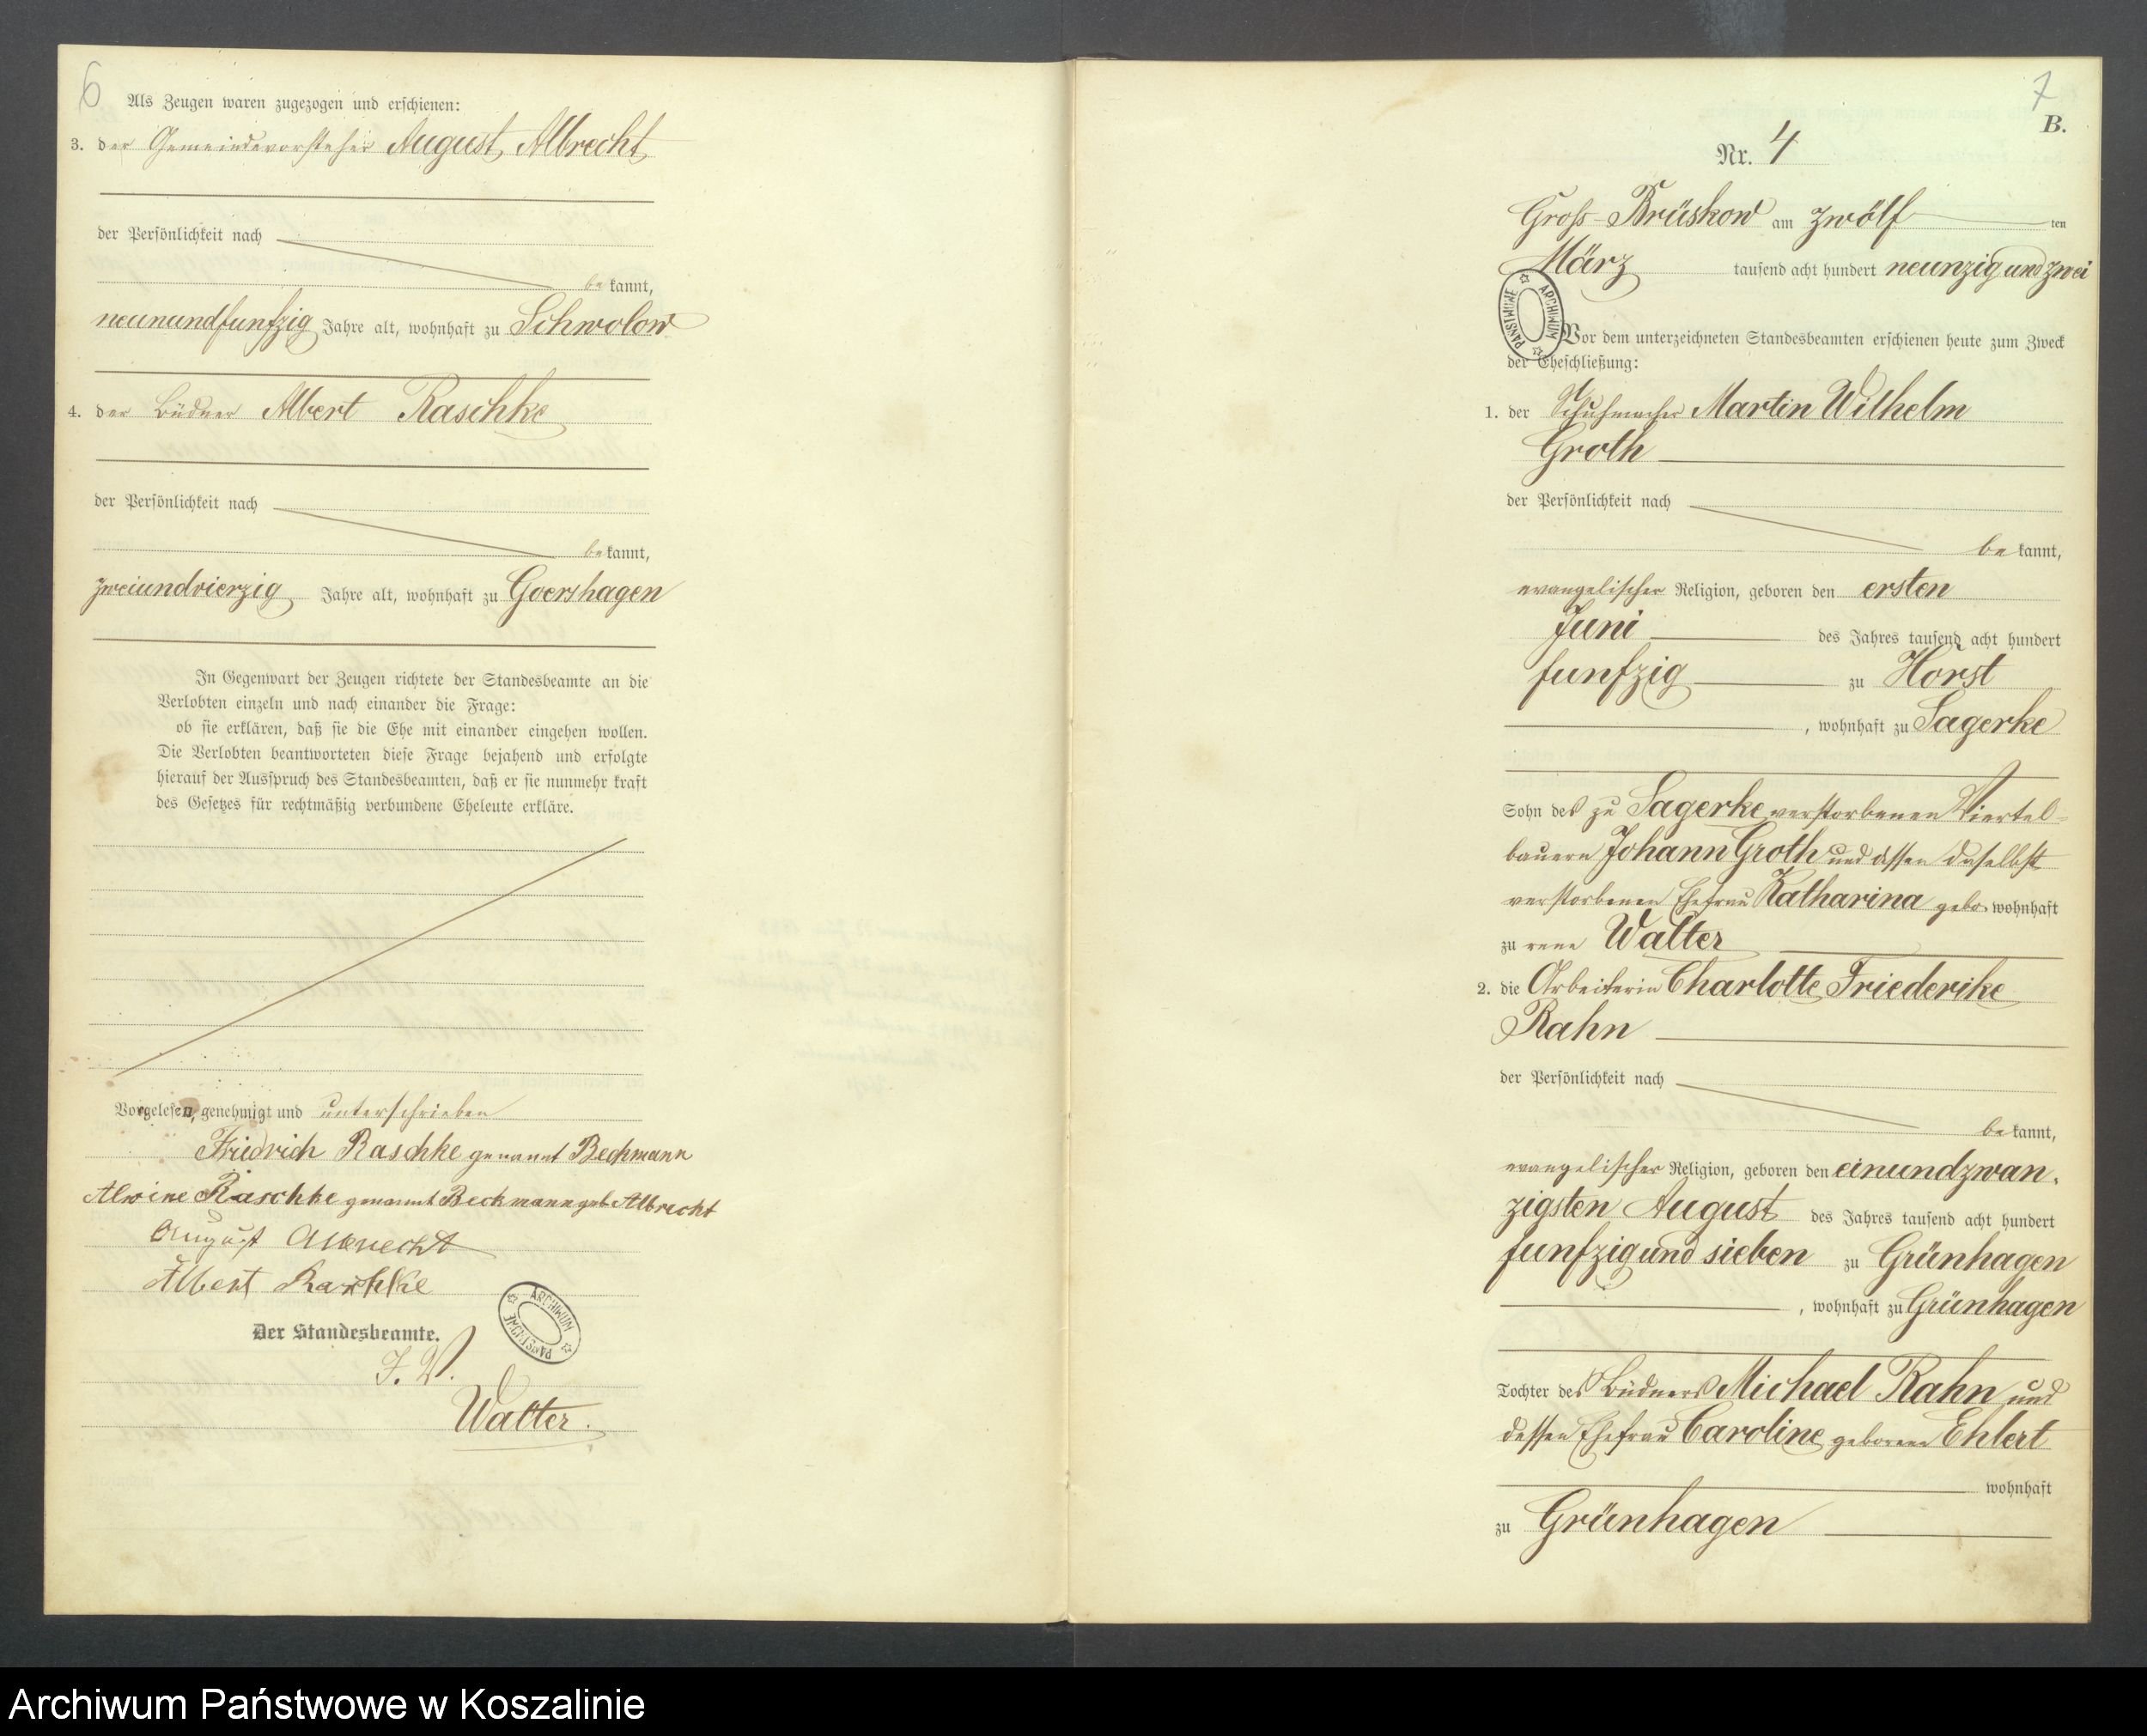 6
Als Zeugen waren zugezogen und erschienen:
3. der Gemeindevorsteher August Albrecht
der Persönlichkeit nach
bekannt,
neunundfunfzig Jahre alt, wohnhaft zu Schwolow
4. der Büdner Albert Raschke
der Persönlichkeit nach
bekannt,
zweiundvierzig Jahre alt, wohnhaft zu Goershagen
In Gegenwart der Zeugen richtete der Standesbeamte an die
Verlobten einzeln und nach einander die Frage:
ob sie erklären, daß sie die Ehe mit einander eingehen wollen.
Die Verlobten beantworteten diese Frage bejahend und erfolgte
hierauf der Ausspruch des Standesbeamten, daß er sie nunmehr kraft
des Gesetzes für rechtmäßig verbundene Eheleute erkläre.
Vorgelesen, genehmigt und unterschrieben
Friedrich Raschke genannt Bechmann
Alwine Raschke genannt Beckmann geb Albrecht
August Albrecht
Albert Raschke
Der Standesbeamte.
J. V.
Walter.
ARCHIWUM PAŃSTWOWE
7
B.
Nr. 4
Groß-Brüskow am zwölf ten
März tausend acht hundert neunzig und zwei
ARCHIWUM PAŃSTWOWE
Vor dem unterzeichneten Standesbeamten erschienen heute zum Zweck
der Eheschließung:
1. der Schuhmacher Martin Wilhelm
Groth
der Persönlichkeit nach
bekannt,
evangelischer Religion, geboren den ersten
Juni des Jahres tausend acht hundert
funfzig zu Horst
, wohnhaft zu Sagerke
Sohn des zu Sagerke verstorbenen Viertel-
bauern Johann Groth und dessen daselbst
verstorbenen Ehefrau Katharina gebo wohnhaft
zu rene Walter
2. die Arbeiterin Charlotte Friederike
Rahn
der Persönlichkeit nach
bekannt,
evangelischer Religion, geboren den einundzwan-
zigsten August des Jahres tausend acht hundert
funfzig und sieben zu Grünhagen
, wohnhaft zu Grünhagen
Tochter des Büdners Michael Rahn und
dessen Ehefrau Caroline geborene Ehlert
wohnhaft
zu Grünhagen
Archiwum Państwowe w Koszalinie